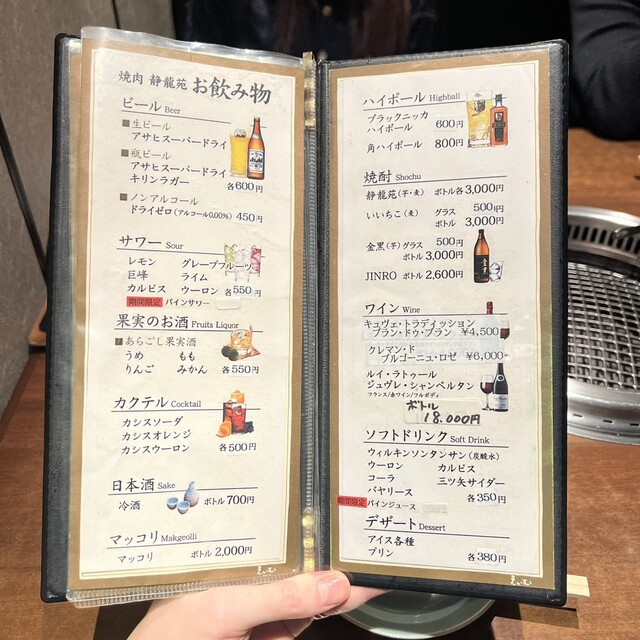 焼肉 静龍苑 お飲み物
ビール Beer
■生ビール
アサヒスーパードライ
■瓶ビール
アサヒスーパードライ
キリンラガー 各600円
■ノンアルコール
ドライゼロ(アルコール0.00%) 450円
サワー Sour
レモン グレープフルーツ
巨峰 ライム
カルピス ウーロン 各550円
期間限定 パインサワー
果実のお酒 Fruits Liquor
■あらごし果実酒
うめ もも
りんご みかん 各550円
カクテル Cocktail
カシスソーダ
カシスオレンジ
カシスウーロン 各500円
日本酒 Sake
冷酒 ボトル 700円
マッコリ Makgeolli
マッコリ ボトル 2,000円
ハイボール Highball
ブラックニッカ
ハイボール 600円
角ハイボール 800円
焼酎 Shochu
静龍苑(芋・麦) ボトル各3,000円
いいちこ(麦) グラス 500円
ボトル 3,000円
金黒(芋)グラス 500円
ボトル 3,000円
JINRO ボトル 2,600円
ワイン Wine
キュヴェ・トラディッション
ブラン・ドゥ・ブラン ¥4,500
クレマン・ド
ブルゴーニュ・ロゼ ¥6,000
ルイ・ラトゥール
ジュヴレ・シャンベルタン
フランス/赤ワイン/フルボディ
ボトル
18.000円
ソフトドリンク Soft Drink
ウィルキンソンタンサン(炭酸水)
ウーロン カルピス
コーラ 三ツ矢サイダー
バヤリース 各350円
期間限定 パインジュース
デザート Dessert
アイス各種
プリン 各380円